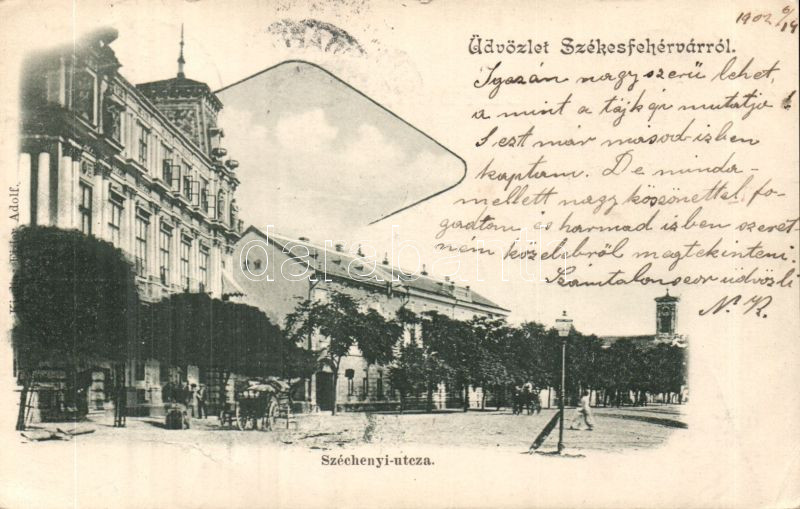 1902 6/14
Üdvözlet Székesfehérvárról.
Igazán nagyszerű lehet,
a mint a tájkép mutatja
s ezt már másodizben
kaptam. De minda-
mellett nagy köszönettel fo-
gadtam és harmadizben szeret-
ném közelebről megtekinteni.
Számtalanszor üdvözli
N. K.
darabanth
Adolf.
Széchenyi-utcza.